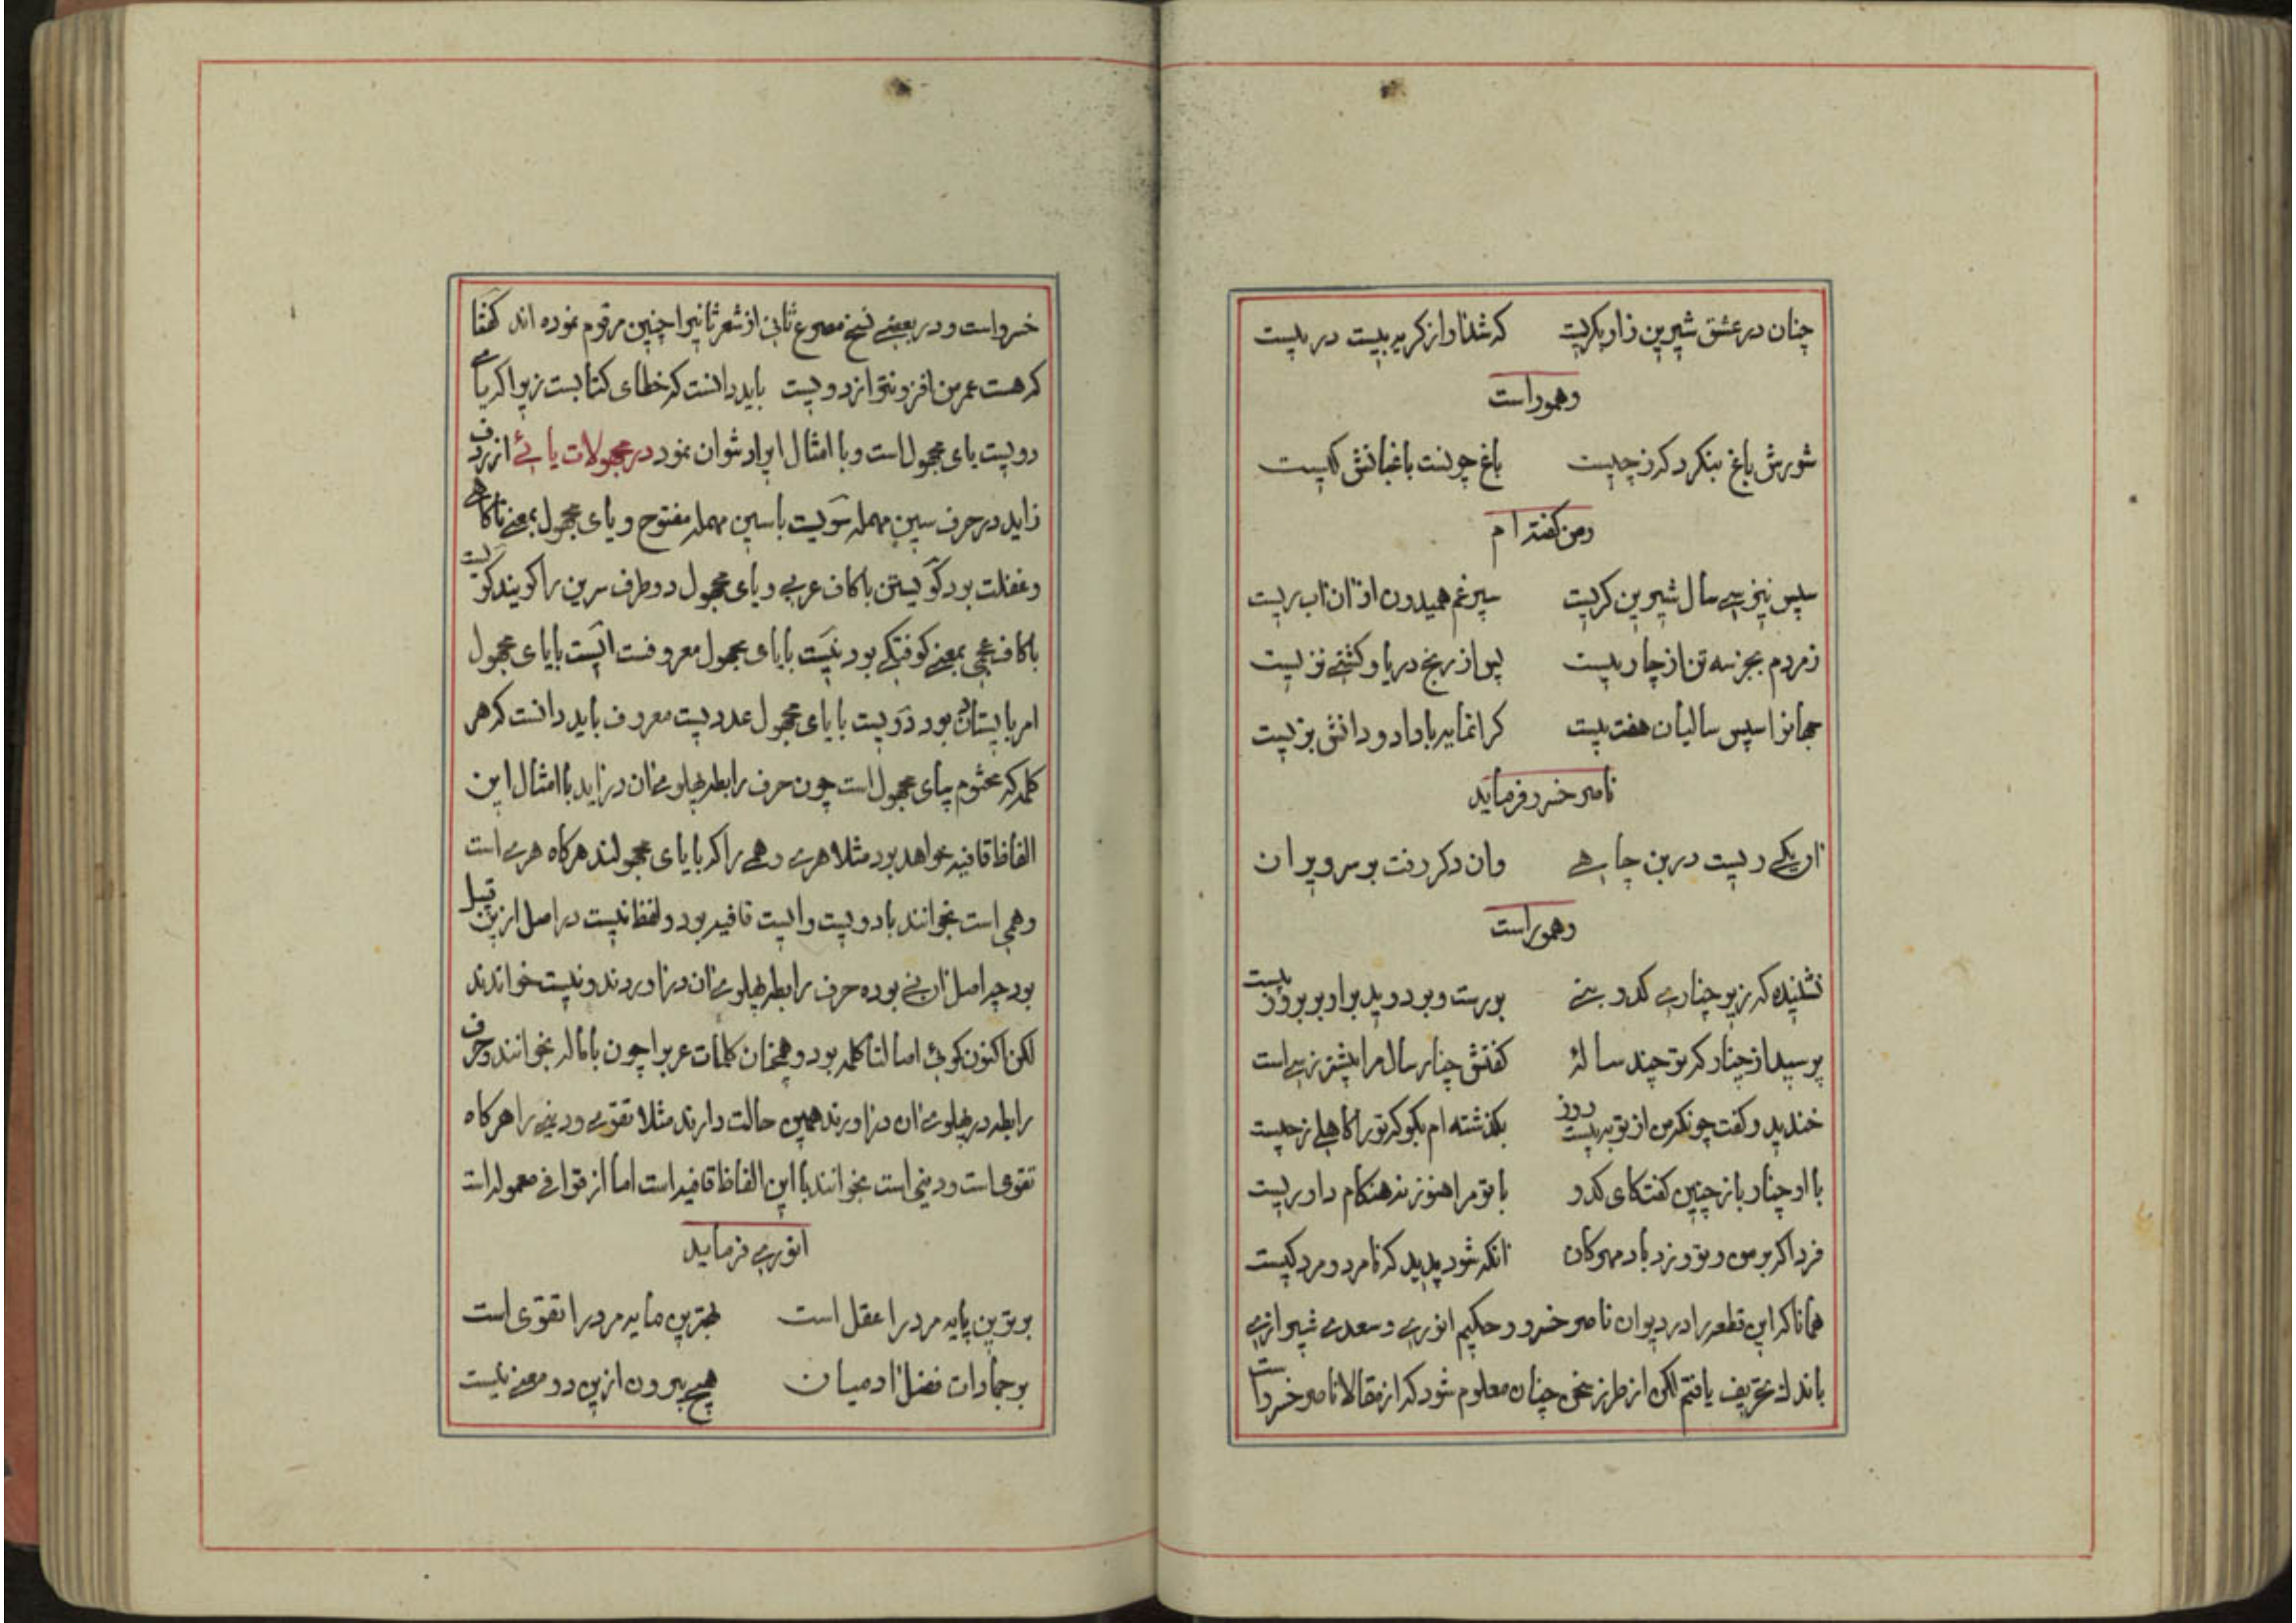 چنان در عشق شیرین زاو بکریت که شد ناو از کریه بیست در بیست
وهموراست
شورش باغ بنکرد کرز چیست باغ چونست باغبانش کیست
ومن کفته ام
سپس نیز سال شیرین کریت
زمردم بجز سه تن از چاره بیست پس از رنج دریا و کشتی نزیست
جهانرا سپس سالیان هفت بیست کرانمایه با داد و دانش بزیست
ناصر خسرو فرماید
ان یکی ریست در بن چاهی وان دکر رفت بر سر ویران
وهموراست
نشنیده که زیر چناری کدو بنی بررست و بر دوید بر او بر بروز بیست
پرسید از چنار که تو چند ساله گفتش چنار سال مرا بیشتر ز سی است
خندید و کفت چونکه من از تو به بیست روز بکذشته ام بکو که تو را کاهلی ز چیست
با او چنار باز چنین کفت کای کدو با تو مرا هنوز نه هنکام داوریست
فردا که بر من و تو وزد باد مهرکان انکه شود پدید که نامرد و مرد کیست
همانا که این قطعه را در دیوان ناصر خسرو و حکیم انوری و سعدی شیرازی
باندک تحریف یافتم لکن از طرز سخن چنان معلوم شود که از مقالا ناصر خسرو است
خسرو است و در بعضی نسخ مصرع ثانی از شعر ثانیرا چنین مرقوم نموده اند کفتا
که هست عمر من افزونتر از دویست باید دانست که خطای کتابست زیرا که یای
دویست یای مجهول است و با امثال ایراد نتوان نمود در مجهولات یائی از ردف
زاید در حرف سین مهمله سویست با سین مهمله مفتوح و یای مجهول بمعنی ناکاهی
وغفلت بود کویستن با کاف عربی و یای مجهول دو طرف سرین را کویند کویست
با کاف عجمی بمعنی کوفتکی بود نیست با یای مجهول معروفست ایست با یای مجهول
امر باایستادن بود دویست با یای مجهول عدد بیست معروف باید دانست که هر
کلمه که مختوم بیای مجهول است چون حرف رابطه پهلوی ان در اید با امثال این
الفاظ قافیه خواهد بود مثلا هری و همی را که با یای مجهولند هرکاه هری است
و همی است بخوانند با دویست و ایست قافیه بود و لفظ نیست در اصل ازین قبیل
بود چه اصل ان نی بوده حرف رابطه پهلوی ان در اوردند و نیست خواندند
لکن اکنون کوئی اصالتا کلمه بود و همچنان کلمات عربرا چون با اماله بخوانند و حرف
رابطه در پهلوی ان در اورند همین حالت دارند مثلا تقوی و دینی را هرکاه
تقوی است و دینی است بخوانند با این الفاظ قافیه است اما از قوافی معموله است
انوری فرماید
برترین پایه مرد را عقل است بهترین مایه مرد را تقوی است
بر جمادات فضل ادمیان هیچ بیرون ازین دو معنی نیست